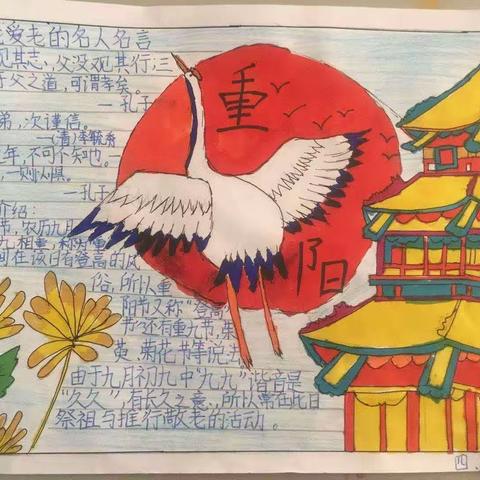 爱老的名人名言
观其志、父没观其行;三
于父之道,可谓孝矣。
—孔子
弟,次谨信。
—(清)李毓秀
年,不可不知也。一
一则以惧。
—孔子
介绍:
节,农历九月
九相重,称为重
间在该日有登高的风
俗,所以重
阳节又称"登高
节"还有重九节,茱
萸、菊花节等说法
由于九月初九中"九九"谐音是
"久久",有长久之意,所以常在此日
祭祖与推行敬老的活动。
重
阳
四、